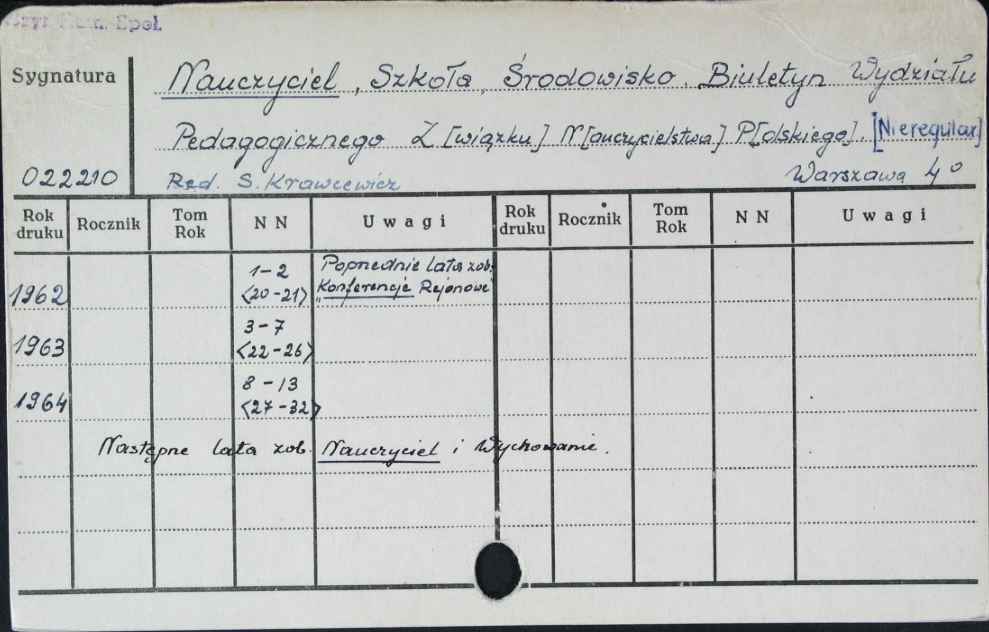 Hum. Społ.
Sygnatura
Nauczyciel, Szkoła, Środowisko. Biuletyn Wydziału
Pedagogicznego Z[wiązku] N[auczycielstwa] P[olskiego]. [Nieregular]
022210 Red. S. Krawcewicz Warszawa 4°
Rok druku Rocznik Tom Rok NN Uwagi Rok druku Rocznik Tom Rok NN Uwagi
1962 1-2 <20-21> Poprzednie lata zob. "Konferencje Rejonowe"
1963 3-7 <22-26>
1964 8-13 <27-32>
Następne lata zob. Nauczyciel i Wychowanie.